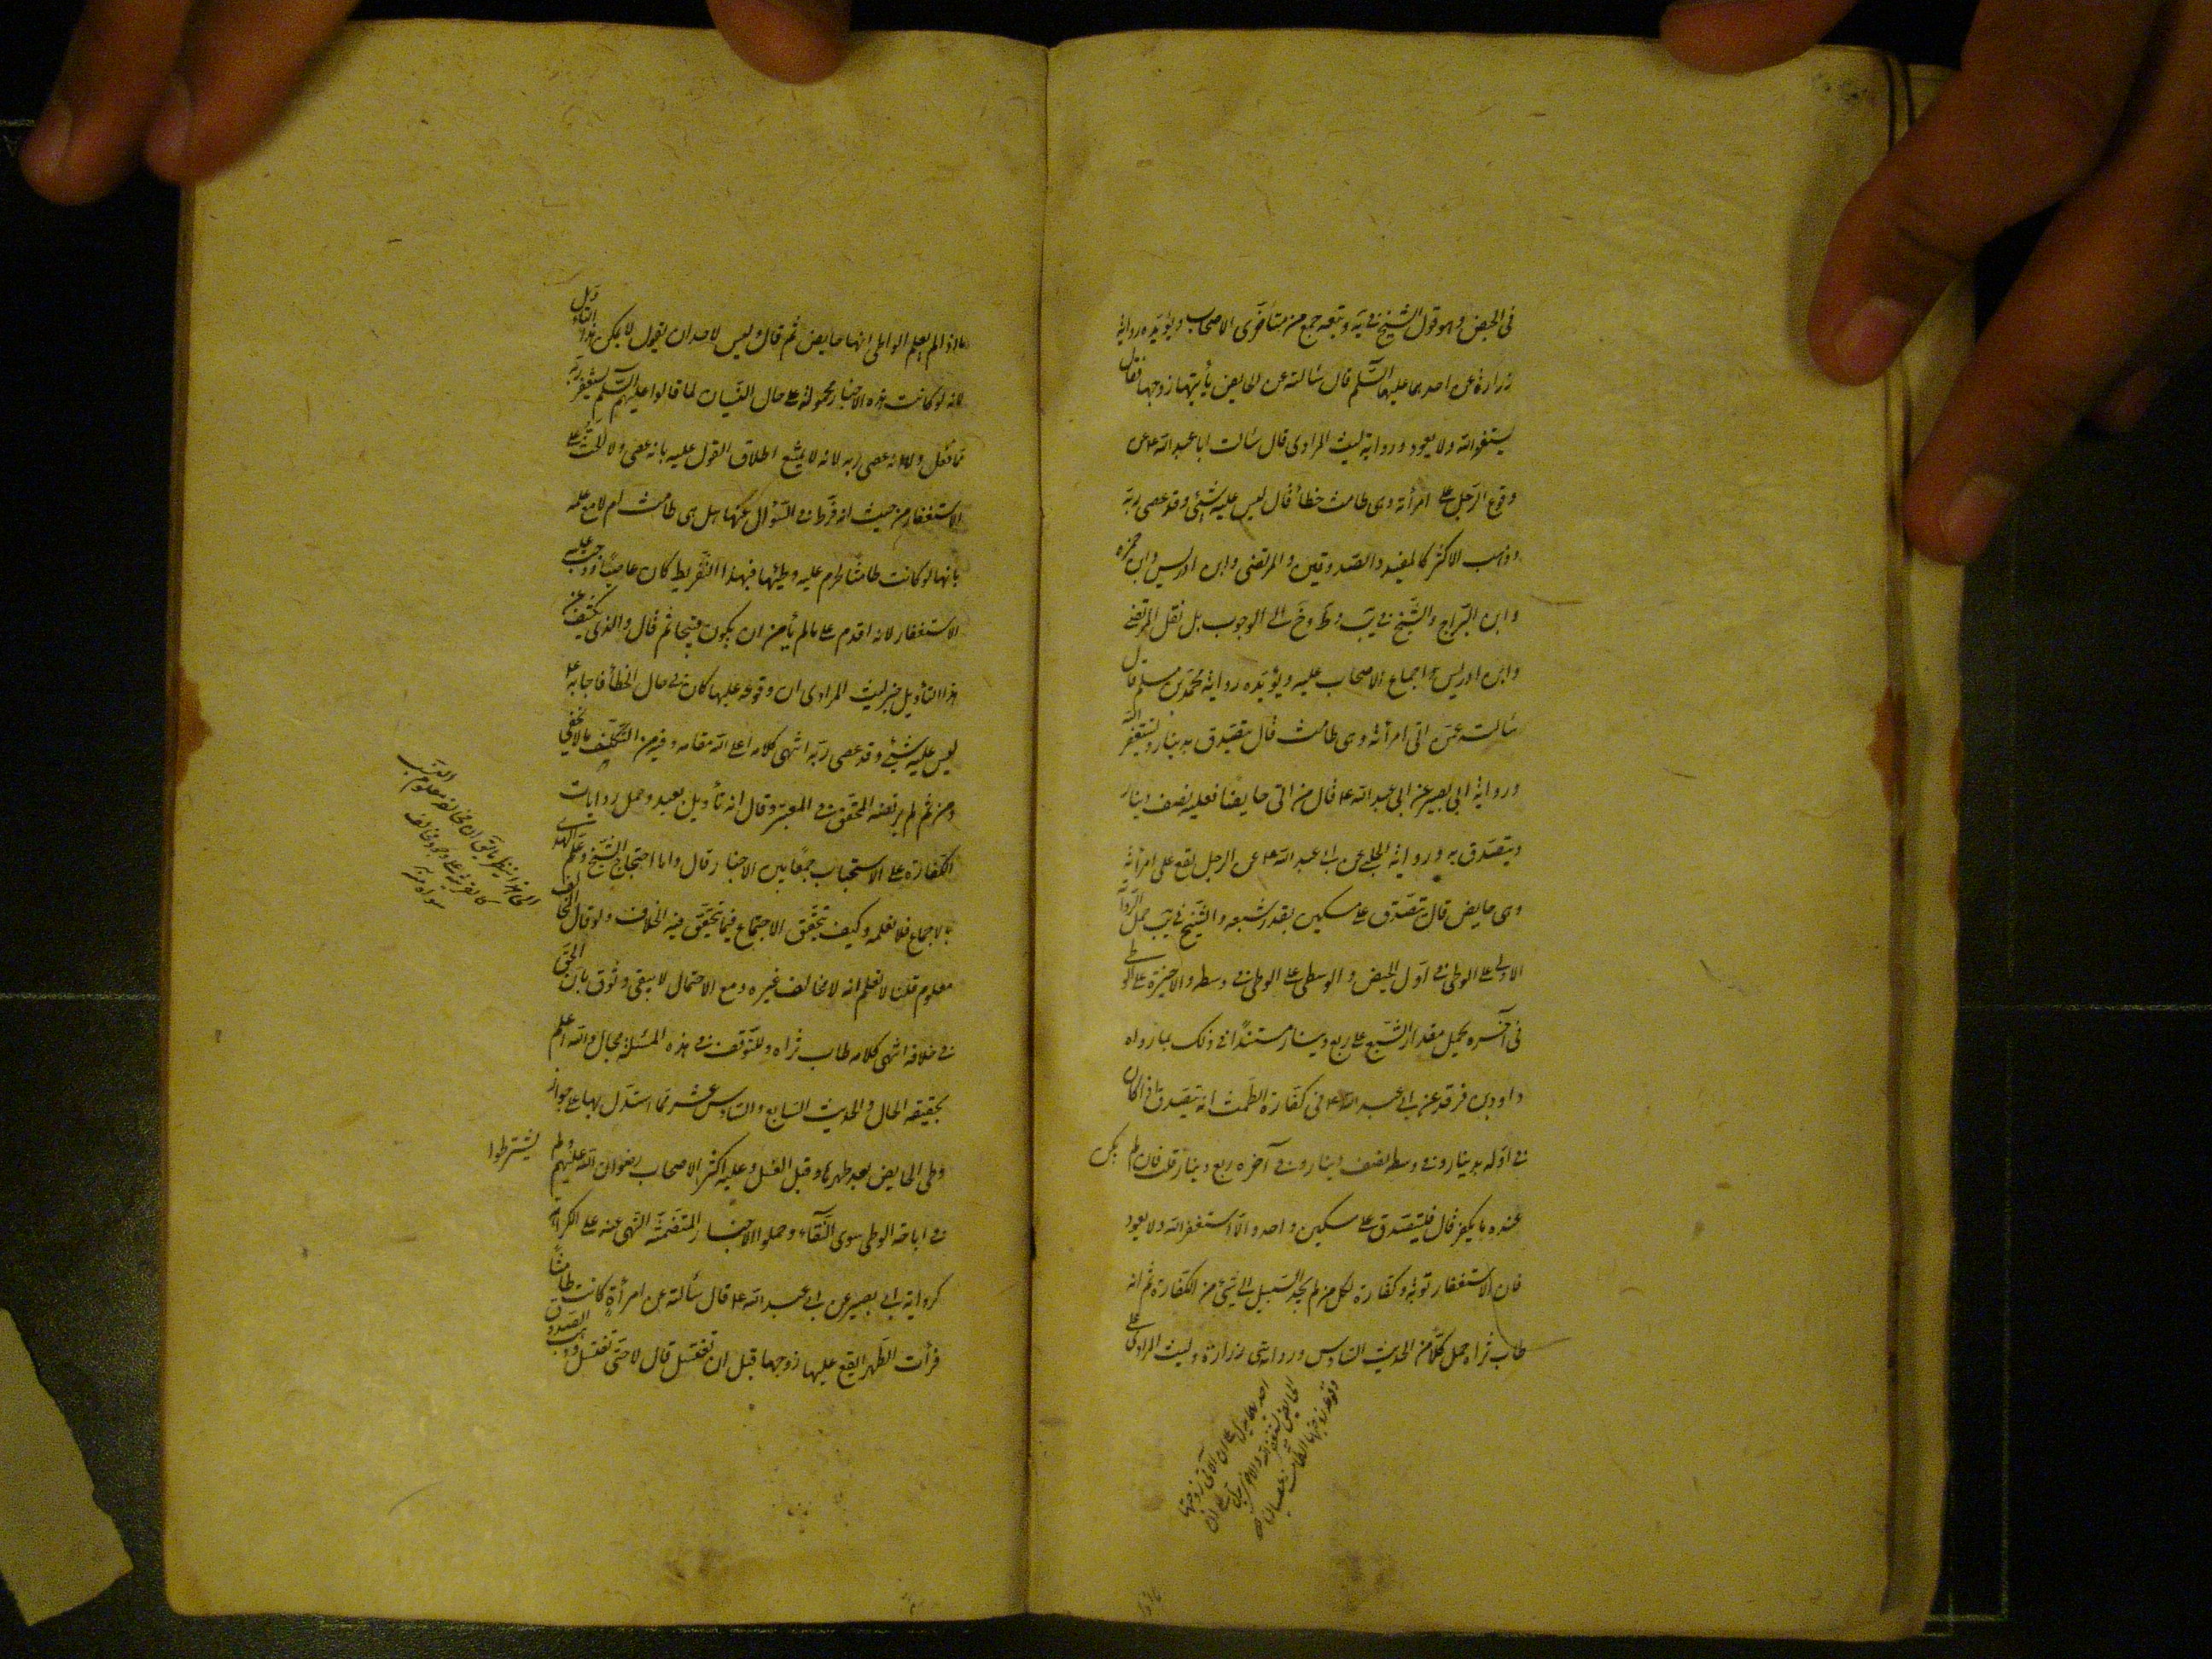 فى الحيض وهو قول الشيخ فى يه وتبعه جمع من متأخرى الاصحاب ويؤيده رواية
زرارة عن احدهما عليهما السلم قال سالته عن الحايض يأتيها زوجها فقال
يستغفر الله ولا يعود ورواية ليث المرادى قال سالت ابا عبد الله ع عن
وقوع الرجل على امرأته وهى طامث خطأ قال ليس عليه شيئ وقد عصى ربه
وذهب الاكثر كالمفيد والصدوقين والمرتضى وابن ادريس وابن حمزه
وابن البراج والشيخ فى يب وط وخ الى الوجوب بل نقل المرتضى
وابن ادريس اجماع الاصحاب عليه ويؤيده رواية محمد بن مسلم قال
سالته عمن اتى امرأته وهى طامث قال يتصدق بدينار ويستغفر الله
ورواية ابى بصير عن ابى عبد الله ع قال من اتى حايضا فعليه نصف دينار
ويتصدق به ورواية الحلبى عن ابى عبد الله ع عن الرجل يقع على امرأته
وهى حايض قال يتصدق على مسكين بقدر شبعه والشيخ فى يب حمل الرواية
الاولى على الوطى فى اول الحيض والوسطى على الوطى فى وسطه والاخيرة على الوطى
فى آخره بحمل مقدار الشبع على ربع دينار مستندا فى ذلك بما رواه
داود بن فرقد عن ابى عبد الله ع فى كفارة الطمث انه يتصدق اذا كان
فى اوله بدينار وفى وسطه نصف دينار وفى آخره ربع دينار قلت فان لم يكن
عنده ما يكفر قال فليتصدق على مسكين واحد والا استغفر الله ولا يعود
فان الاستغفار توبة وكفارة لكل من لم يجد السبيل الى شئ من الكفارة ثم انه
طاب ثراه حمل كلا من الحديث السادس وروايتى زرارة وليث المرادى على
ما اذا لم يعلم الواطى انها حايض ثم قال وليس لاحد ان يقول لا يمكن هذا التأويل
لانه لو كانت هذه الاخبار محمولة على حال النسيان لما قالوا عليهم السلم يستغفر ربه
مما فعل ولا انه عصى ربه لانه لا يمتنع اطلاق القول عليه بانه عصى ولا الحث على
الاستغفار من حيث انه فرط فى السؤال عنها هل هى طامث ام لا مع علمه
بانها لو كانت طامثا لحرم عليه وطيها فبهذا التفريط كان عاصيا ووجب عليه
الاستغفار لانه اقدم على ما لم يأمن ان يكون قبيحا ثم قال والذى يكشف عن
هذا التأويل خبر ليث المرادى ان وقوعه عليها كان فى حال الخطأ فاجابه ع
ليس عليه شيئ وقد عصى ربه انتهى كلامه اعلى الله مقامه وفيه من التكلف ما لا يخفى
ومن ثم لم يرتضه المحقق فى المعتبر وقال انه تأويل بعيد وحمل روايات
الكفارة على الاستحباب جمعا بين الاخبار وقال واما احتجاج الشيخ وعلم الهدى
بالاجماع فلا نعلمه وكيف يتحقق الاجماع فيما يتحقق فيه الخلاف ولو قال المخالف
معلوم قلنا لا نعلم انه لا مخالف غيره ومع الاحتمال لا يبقى وثوق بان الحق
فى خلافه انتهى كلامه طاب ثراه وللتوقف فى هذه المسئلة مجال والله اعلم
بحقيقة الحال والحديث السابع والسادس عشر مما استدل بهما على جواز
وطى الحايض بعد طهرها وقبل الغسل وعليه اكثر الاصحاب رضوان الله عليهم ولم يشترطوا
فى اباحة الوطى سوى النقاء وحملوا الاخبار المتضمنة النهى عنه على الكراهة
كرواية ابى بصير عن ابى عبد الله ع قال سألته عن امرأة كانت طامثا
فرأت الطهر ايقع عليها زوجها قبل ان تغتسل قال لا حتى تغتسل وذهب الصدوق